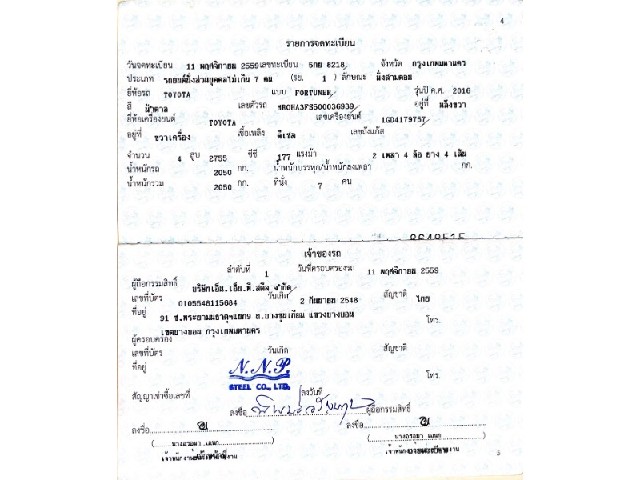 4
รายการจดทะเบียน
วันจดทะเบียน 11 พฤศจิกายน 2559 เลขทะเบียน 5กย 8218 จังหวัด กรุงเทพมหานคร
ประเภท รถยนต์นั่งส่วนบุคคลไม่เกิน 7 คน (รย. 1) ลักษณะ นั่งสามตอน
ยี่ห้อรถ TOYOTA แบบ FORTUNER รุ่นปี ค.ศ. 2016
สี น้ำตาล เลขตัวรถ อยู่ที่ หลังขวา
ยี่ห้อเครื่องยนต์ TOYOTA เลขเครื่องยนต์
อยู่ที่ ขวาเครื่อง เชื้อเพลิง ดีเซล เลขถังแก๊ส
จำนวน 4 สูบ 2755 ซีซี 177 แรงม้า 2 เพลา 4 ล้อ ยาง 4 เส้น
น้ำหนักรถ 2050 กก. น้ำหนักบรรทุก/น้ำหนักลงเพลา กก.
น้ำหนักรวม 2050 กก. ที่นั่ง 7 คน
เจ้าของรถ
ลำดับที่ 1 วันที่ครอบครองรถ 11 พฤศจิกายน 2559
ผู้ถือกรรมสิทธิ์ บริษัทเอ็น.เอ็น.พี.สตีล จำกัด
เลขที่บัตร 0105548115684 วันเกิด 2 กันยายน 2548 สัญชาติ ไทย
ที่อยู่ 91 โทร.
เขตบางบอน กรุงเทพมหานคร
ผู้ครอบครอง
เลขที่บัตร วันเกิด สัญชาติ
ที่อยู่ โทร.
N.N.P.
STEEL CO., LTD.
สัญญาเช่าซื้อเลขที่ ลงวันที่
ลงชื่อ ผู้ถือกรรมสิทธิ์
ลงชื่อ ลงชื่อ